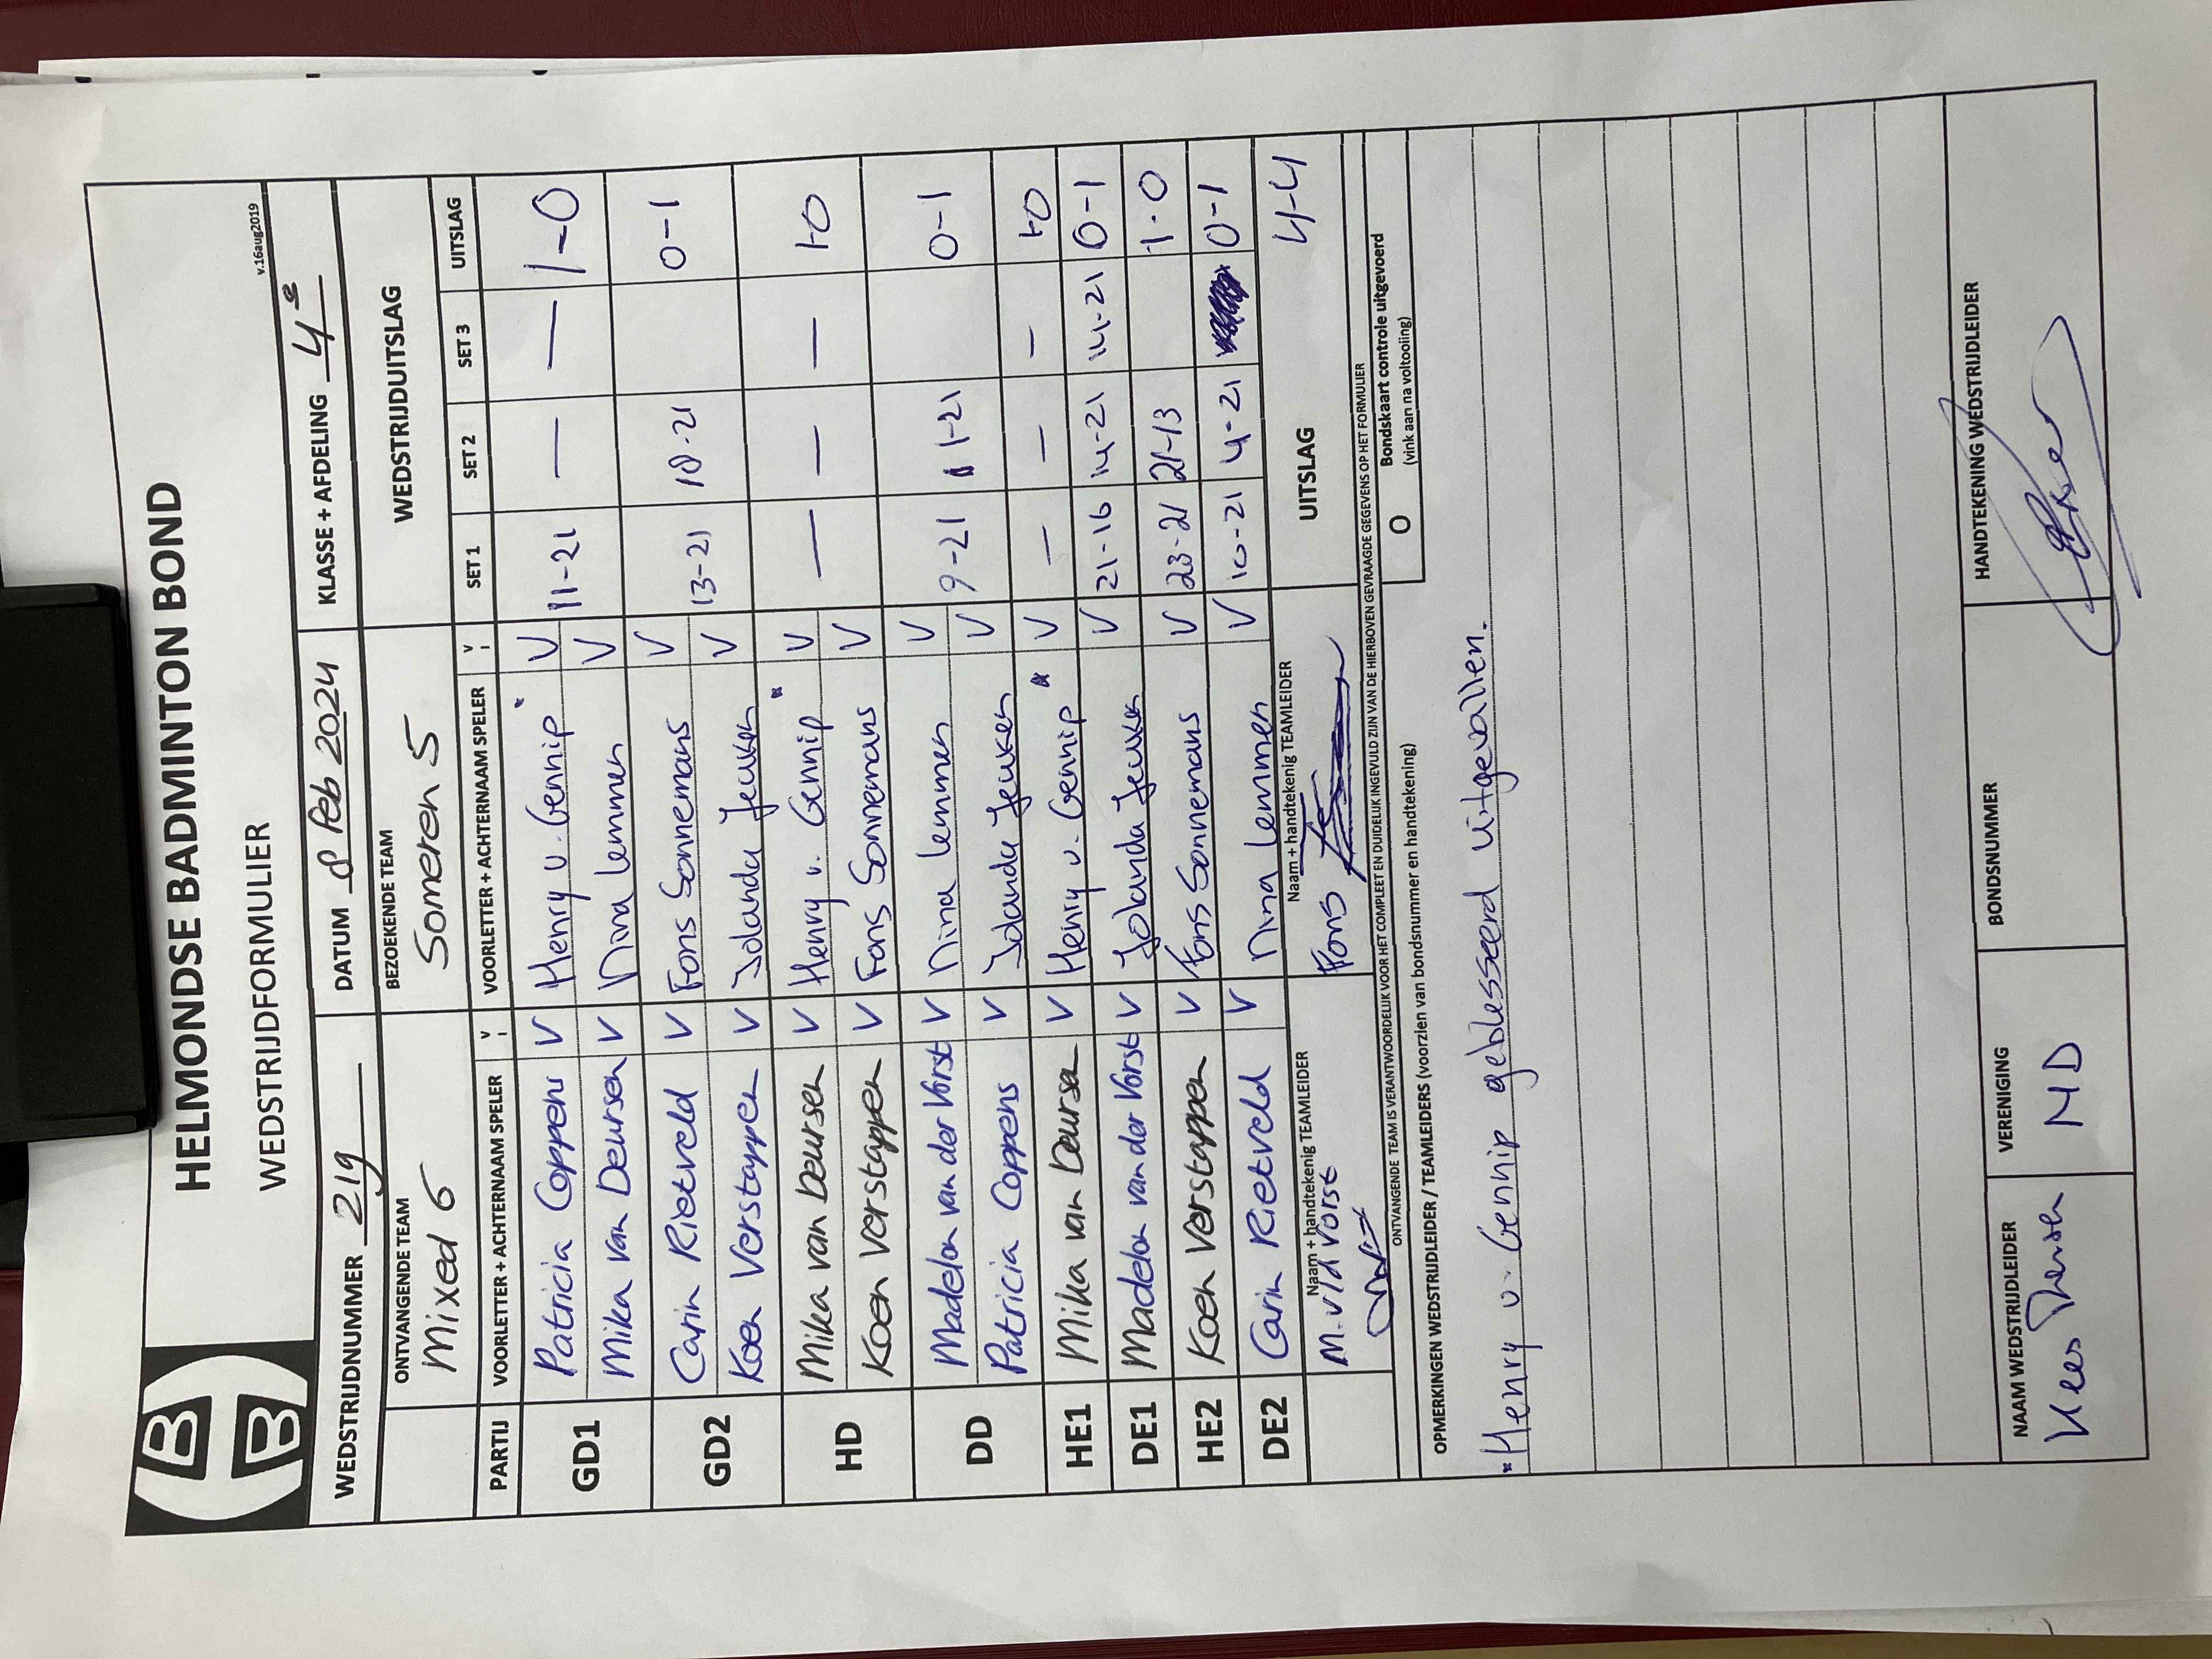 HELMONDSE BADMINTON BOND
WEDSTRIJDFORMULIER
v.16aug2019
WEDSTRIJDNUMMER 219 DATUM 8 Feb 2024 KLASSE + AFDELING 4e
ONTVANGENDE TEAM BEZOEKENDE TEAM WEDSTRIJDUITSLAG
Mixed 6 Someren 5
PARTIJ VOORLETTER + ACHTERNAAM SPELER V VOORLETTER + ACHTERNAAM SPELER V SET 1 SET 2 SET 3 UITSLAG
GD1 Patricia Coppens V Henry v. Gennip * V 11-21 — — 1-0
Mika van Deursen V Nina Lemmen V
GD2 Carin Rietveld V Fons Sonnemans V 13-21 18-21 0-1
Koen Verstappen V Jolanda Jeuken V
HD Mika van Deursen V Henry v. Gennip * V — — — 1-0
Koen Verstappen V Fons Sonnemans V
DD Madelon van der Vorst V Nina Lemmen V 9-21 11-21 0-1
Patricia Coppens V Jolanda Jeuken V
HE1 Mika van Deursen V Henry v. Gennip * V — — — 1-0
DE1 Madelon van der Vorst V Jolanda Jeuken V 21-16 14-21 14-21 0-1
HE2 Koen Verstappen V Fons Sonnemans V 23-21 21-13 1-0
DE2 Carin Rietveld V Nina Lemmen V 10-21 4-21 0-1
Naam + handtekenig TEAMLEIDER Naam + handtekenig TEAMLEIDER UITSLAG 4-4
M. v/d Vorst Fons
ONTVANGENDE TEAM IS VERANTWOORDELIJK VOOR HET COMPLEET EN DUIDELIJK INGEVULD ZIJN VAN DE HIERBOVEN GEVRAAGDE GEGEVENS OP HET FORMULIER
OPMERKINGEN WEDSTRIJDLEIDER / TEAMLEIDERS (voorzien van bondsnummer en handtekening) O Bondskaart controle uitgevoerd
(vink aan na voltooiing)
* Henry v. Gennip geblesseerd uitgevallen.
NAAM WEDSTRIJDLEIDER VERENIGING BONDSNUMMER HANDTEKENING WEDSTRIJDLEIDER
Kees MD